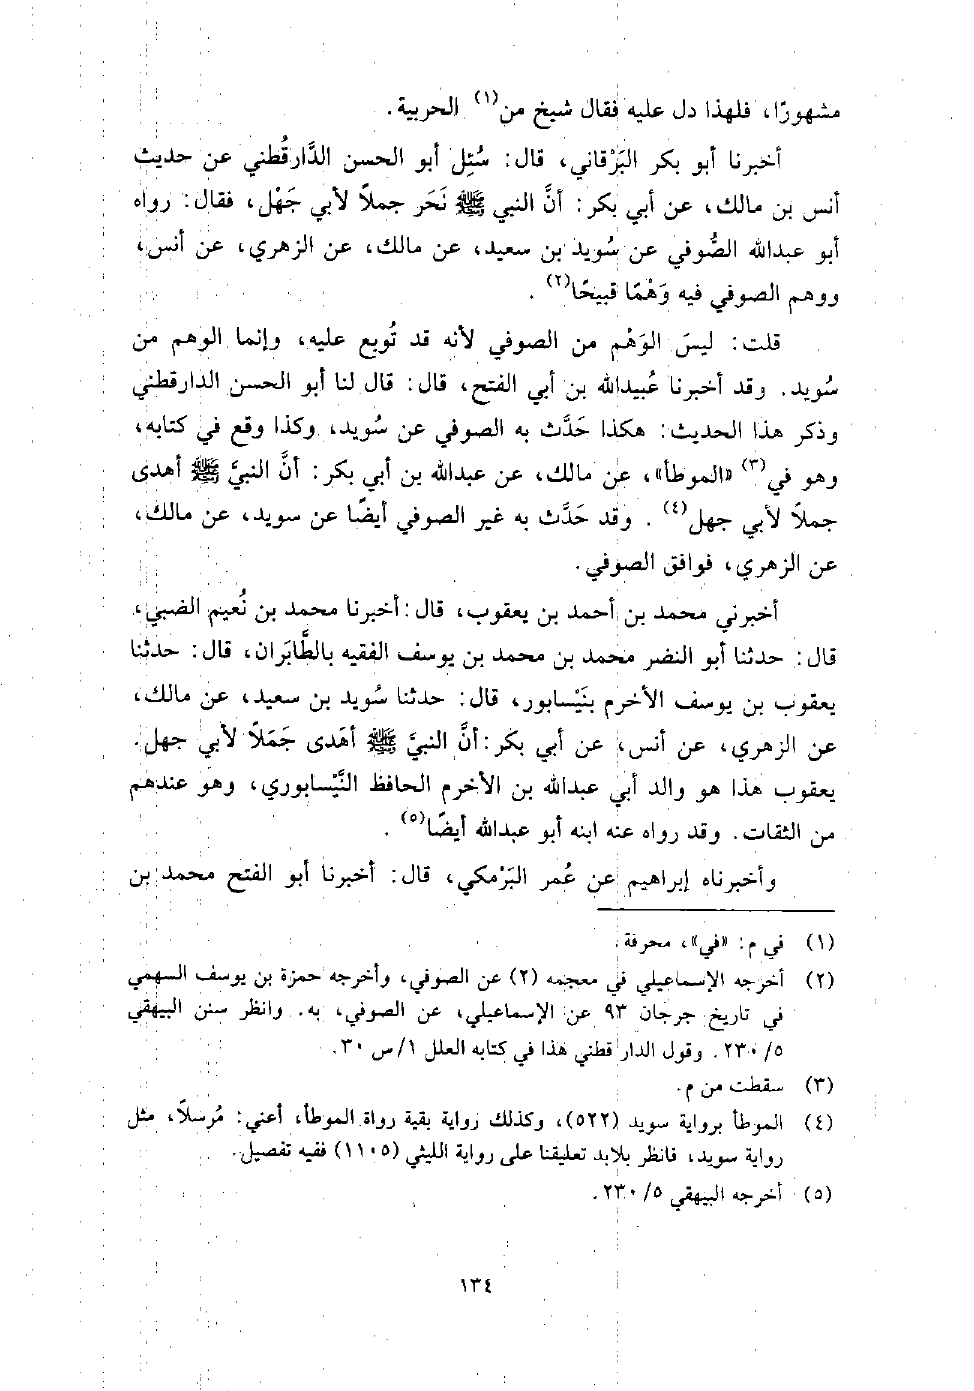 مشهورًا، فلهذا دل عليه فقال شيخ من(١) الحربية.
أخبرنا أبو بكر البَرْقاني، قال: سُئِل أبو الحسن الدَّارقُطني عن حديث
أنس بن مالك، عن أبي بكر: أنَّ النبي ﷺ نَحَر جملاً لأبي جَهْل، فقال: رواه
أبو عبدالله الصُّوفي عن سُويد بن سعيد، عن مالك، عن الزهري، عن أنس،
ووهم الصوفي فيه وَهْمًا قبيحًا(٢).
قلت: ليسَ الوَهْم من الصوفي لأنه قد تُوبع عليه، وإنما الوهم من
سُويد. وقد أخبرنا عُبيدالله بن أبي الفتح، قال: قال لنا أبو الحسن الدارقطني
وذكر هذا الحديث: هكذا حَدَّث به الصوفي عن سُويد، وكذا وقع في كتابه،
وهو في(٣) «الموطأ»، عن مالك، عن عبدالله بن أبي بكر: أنَّ النبيَّ ﷺ أهدى
جملاً لأبي جهل(٤). وقد حَدَّث به غير الصوفي أيضًا عن سويد، عن مالك،
عن الزهري، فوافق الصوفي.
أخبرني محمد بن أحمد بن يعقوب، قال: أخبرنا محمد بن نُعيم الضبي،
قال: حدثنا أبو النضر محمد بن محمد بن يوسف الفقيه بالطَّابَران، قال: حدثنا
يعقوب بن يوسف الأخرم بنَيْسابور، قال: حدثنا سُويد بن سعيد، عن مالك،
عن الزهري، عن أنس، عن أبي بكر: أنَّ النبيَّ ﷺ أهَدى جَمَلاً لأبي جهل.
يعقوب هذا هو والد أبي عبدالله بن الأخرم الحافظ النَّيْسابوري، وهو عندهم
من الثقات. وقد رواه عنه ابنه أبو عبدالله أيضًا(٥).
وأخبرناه إبراهيم عن عُمر البَرْمكي، قال: أخبرنا أبو الفتح محمد بن
(١) في م: «في»، محرفة.
(٢) أخرجه الإسماعيلي في معجمه (٢) عن الصوفي، وأخرجه حمزة بن يوسف السهمي
في تاريخ جرجان ٩٣ عن الإسماعيلي، عن الصوفي، به. وانظر سنن البيهقي
٥/ ٢٣٠. وقول الدار قطني هذا في كتابه العلل ١/ س ٣٠.
(٣) سقطت من م.
(٤) الموطأ برواية سويد (٥٢٢)، وكذلك رواية بقية رواة الموطأ، أعني: مُرسلاً، مثل
رواية سويد، فانظر بلابد تعليقنا على رواية الليثي (١١٠٥) ففيه تفصيل.
(٥) أخرجه البيهقي ٥/ ٢٣٠.
١٣٤